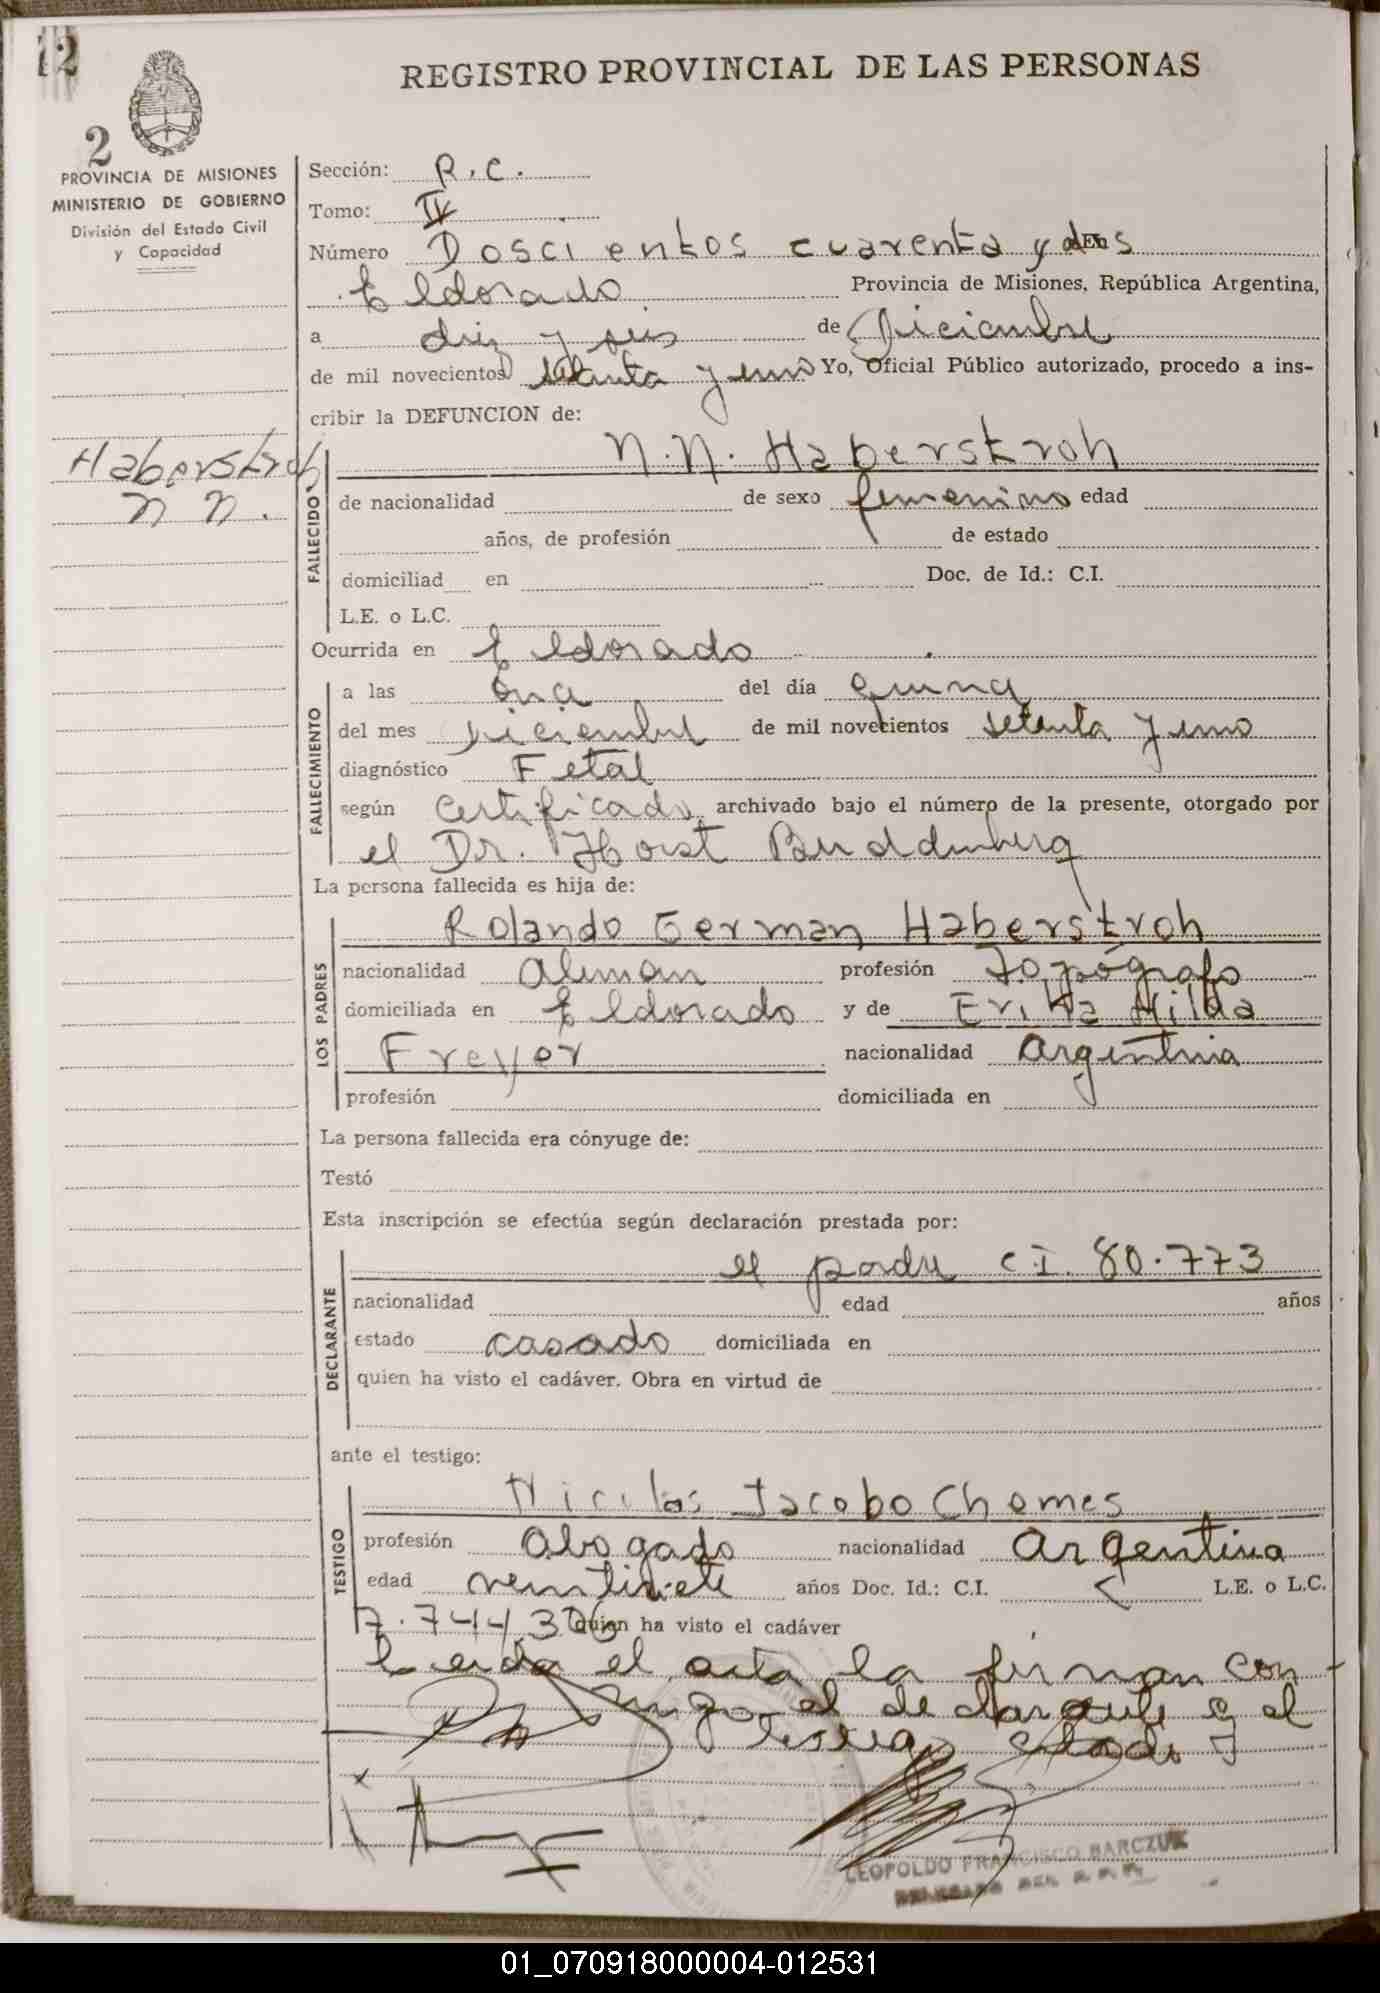 12
REGISTRO PROVINCIAL DE LAS PERSONAS
2
PROVINCIA DE MISIONES
MINISTERIO DE GOBIERNO
División del Estado Civil
y Capacidad
Haberstroh
N N.
Sección: R.C.
Tomo: IV
Número Doscientos cuarenta y dos
Eldorado Provincia de Misiones, República Argentina,
a diez y seis de Diciembre
de mil novecientos setenta y uno Yo, Oficial Público autorizado, procedo a ins-
cribir la DEFUNCION de:
FALLECIDO
N.N. Haberstroh
de nacionalidad de sexo femenino edad
años, de profesión de estado
domiciliad en Doc. de Id.: C.I.
L.E. o L.C.
Ocurrida en Eldorado
FALLECIMIENTO
a las del día
del mes Diciembre de mil novecientos setenta y uno
diagnóstico Fetal
según Certificado archivado bajo el número de la presente, otorgado por
el Dr. Horst Buddenberg
La persona fallecida es hija de:
LOS PADRES
Rolando German Haberstroh
nacionalidad Aleman profesión Topógrafo
domiciliada en Eldorado y de Erika Hilda
Freyer nacionalidad Argentina
profesión domiciliada en
La persona fallecida era cónyuge de:
Testó
Esta inscripción se efectúa según declaración prestada por:
DECLARANTE
el padre C.I. 80.773
nacionalidad edad años
estado casado domiciliada en
quien ha visto el cadáver. Obra en virtud de
ante el testigo:
TESTIGO
Nicolas Jacobo Chemes
profesión Abogado nacionalidad Argentina
edad años Doc. Id.: C.I. L.E. o L.C.
7.744.306 quien ha visto el cadáver
Leida el acta la firman con-
migo el declarante y el
testigo
LEOPOLDO FRANCISCO BARCZUK
DELEGADO DEL R.P.P.
01_070918000004-012531